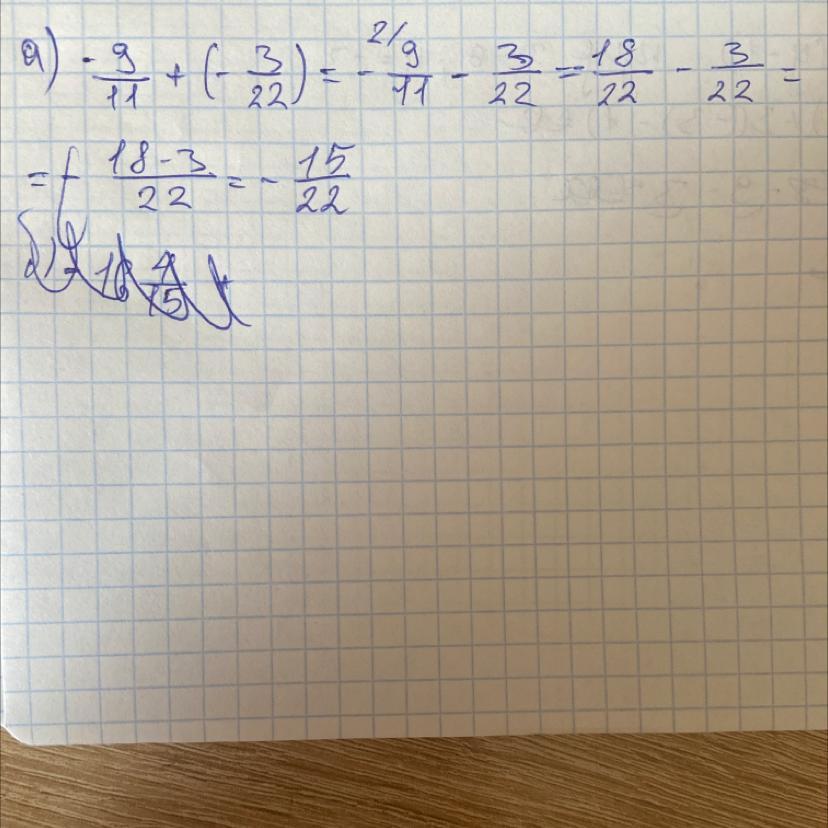 а) - 9/11 + (- 3/22) = - 2/ 9/11 - 3/22 = 18/22 - 3/22 =
= - 18-3/22 = - 15/22